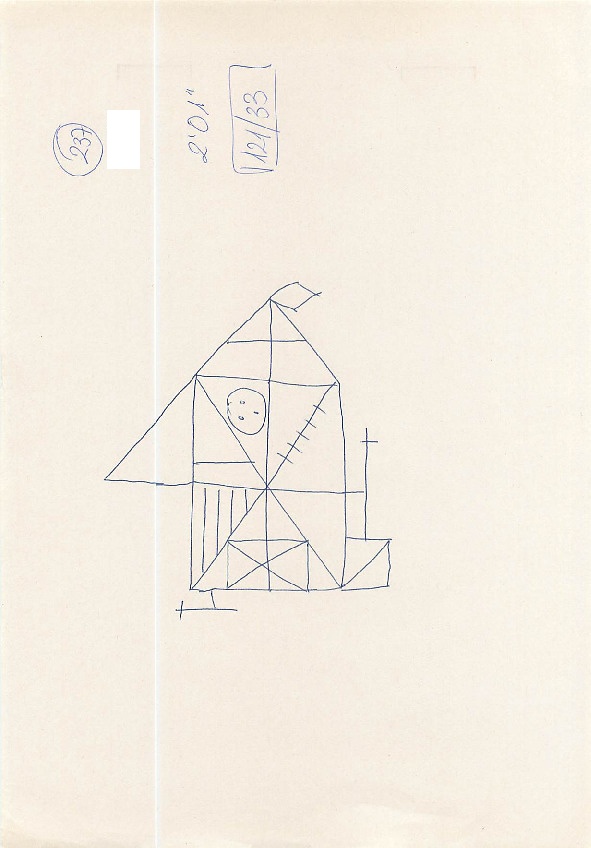 237
2'01"
121/33